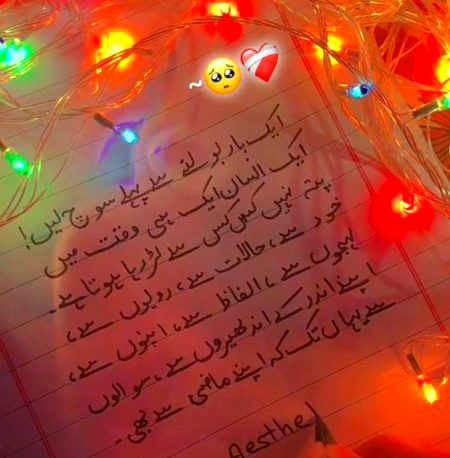 ~🥺❤️‍🩹
ایک بار بولنے سے پہلے سوچ لیں!
ایک انسان ایک ہی وقت میں
پتہ نہیں کس کس سے لڑ رہا ہوتا ہے۔
خود سے، حالات سے، رویوں سے،
لہجوں سے، الفاظ سے، اپنوں سے،
اپنے اندر کے اندھیروں سے، سوالوں
سے یہاں تک کہ اپنے ماضی سے بھی۔